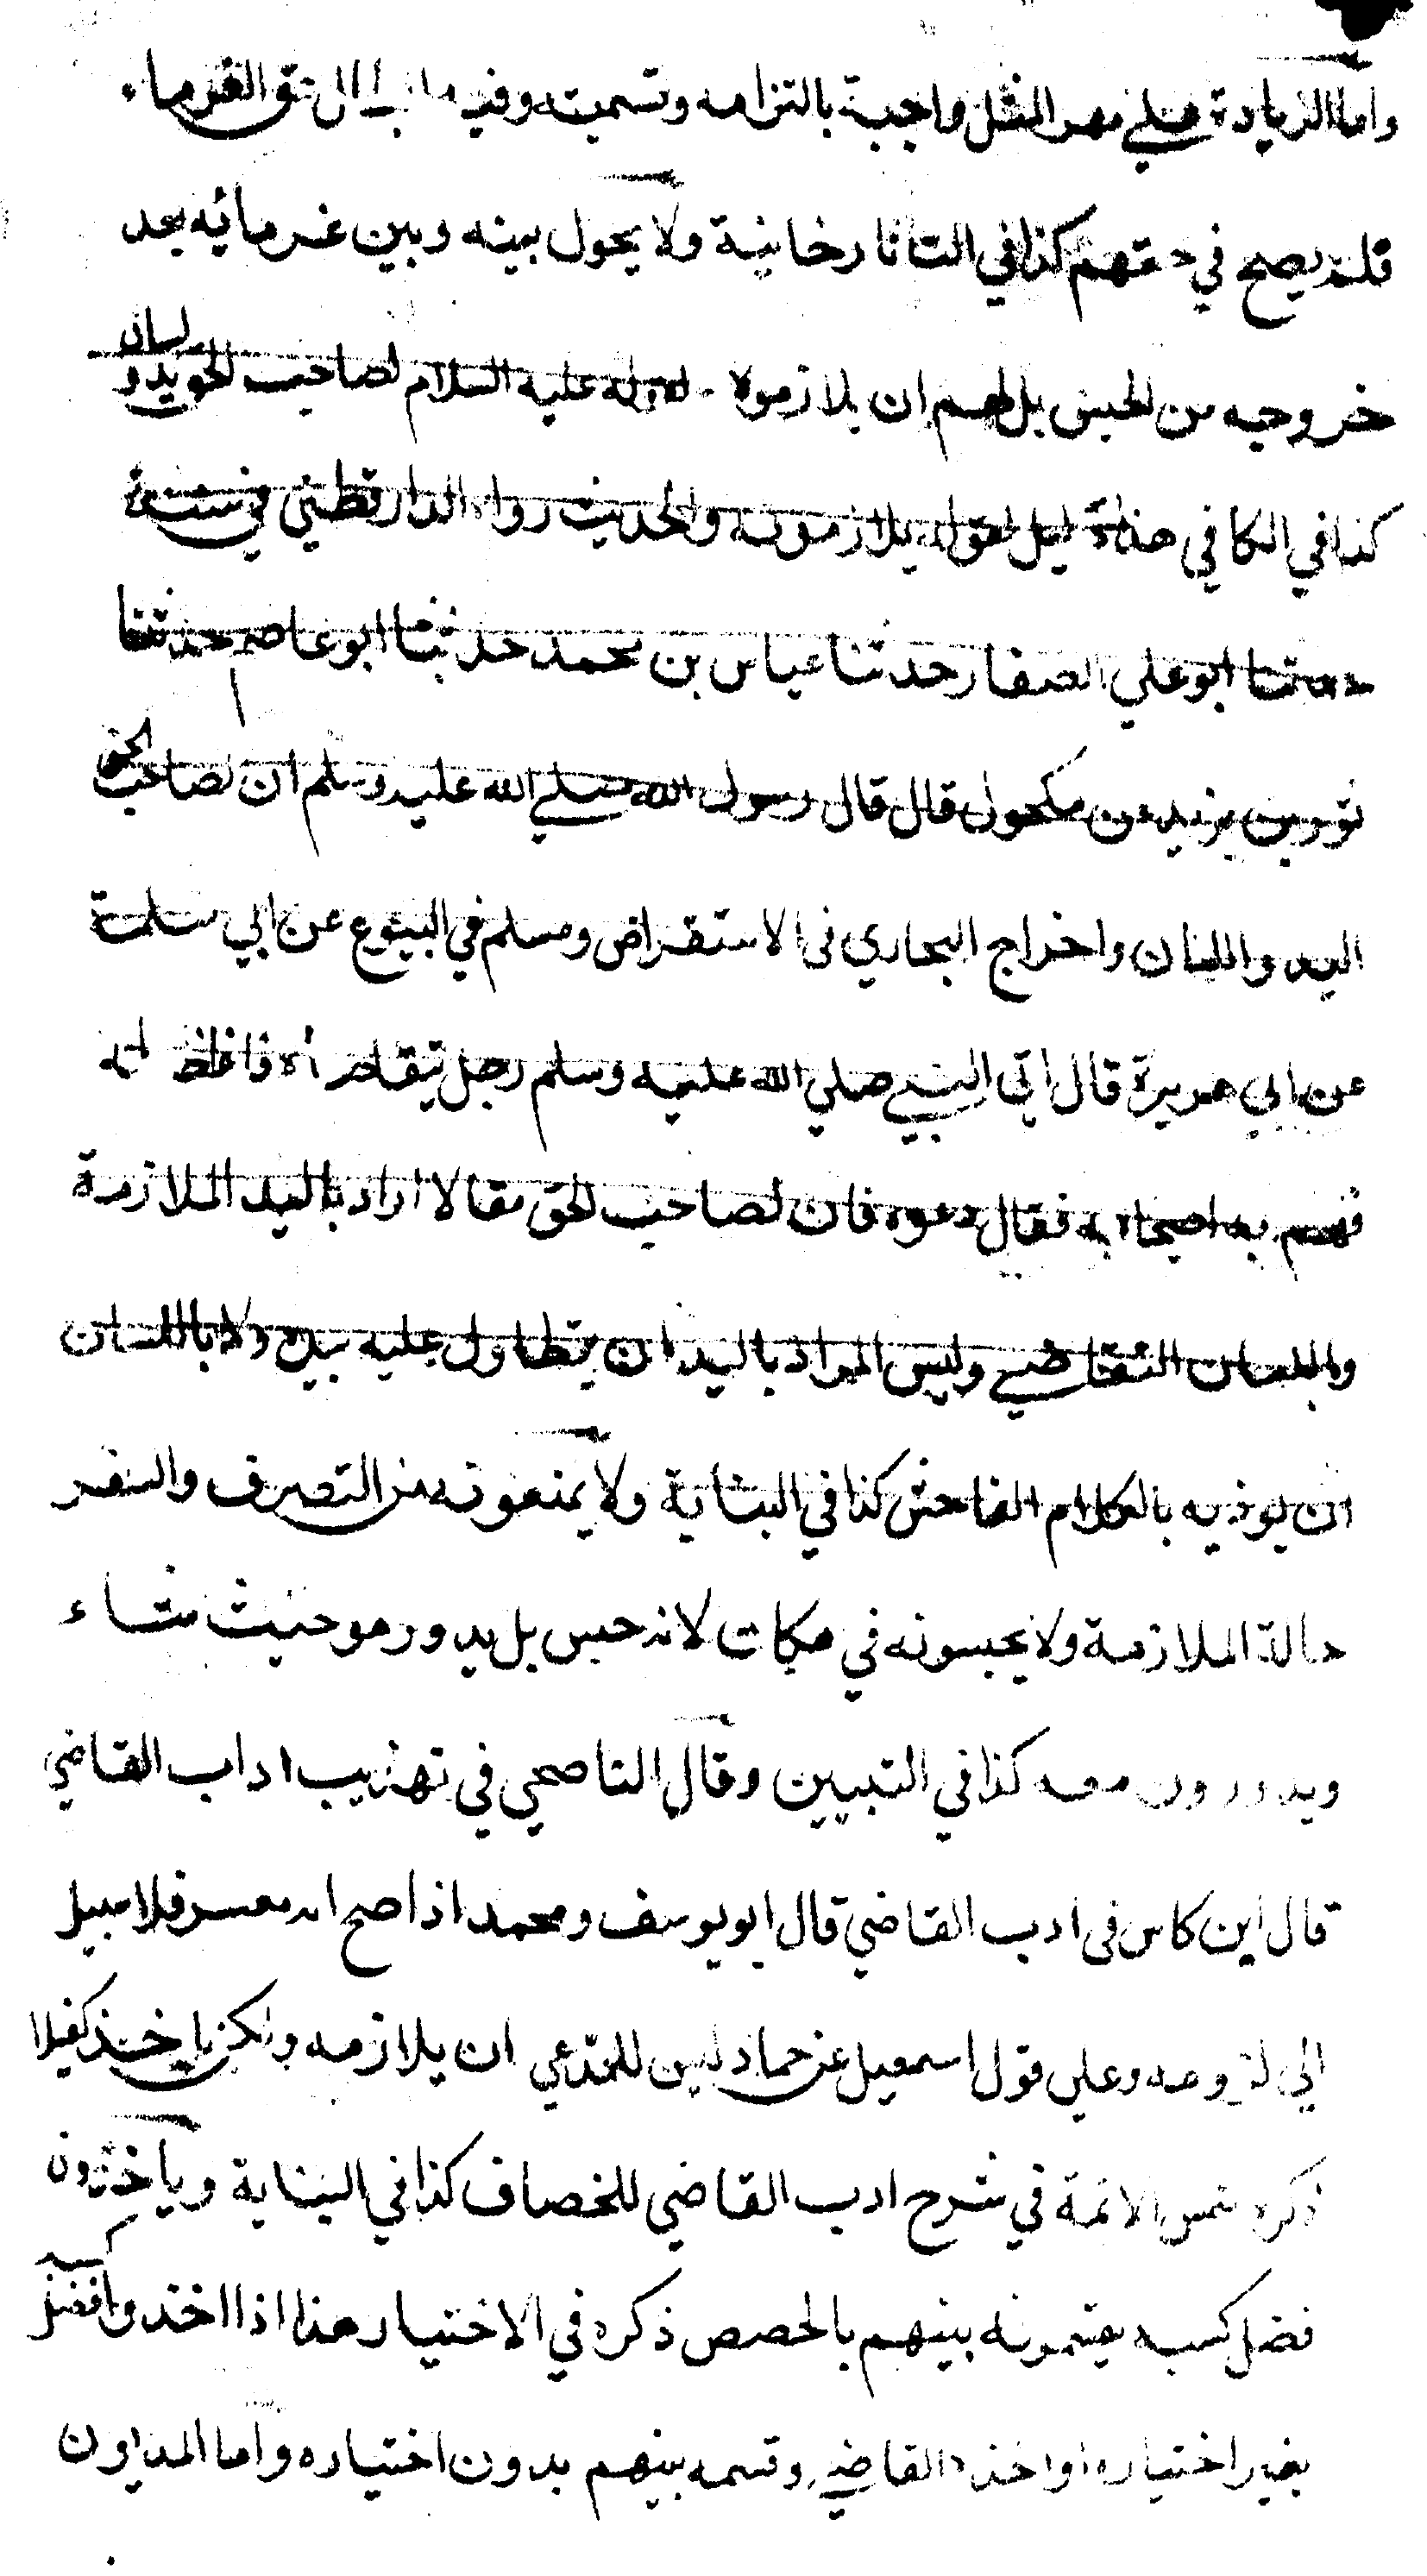 واما الزيادة على مهر المثل واجبة بالتزامه وتسميته وفيه ابطال حق الغرماء
فلم يصح في حقهم كذا في التاتارخانية ولا يحول بينه وبين غرمائه بعد
خروجه من الحبس بل لهم ان يلازموه لقوله عليه السلام لصاحب الحق يد و لسان
كذا في الكافي هذا دليل لقوله يلازمونه والحديث رواه الدارقطني في سننه
حدثنا ابو علي الصفار حدثنا عباس بن محمد حدثنا ابو عاصم حدثنا
ثور بن يزيد عن مكحول قال قال رسول الله صلي الله عليه وسلم ان لصاحب الحق
اليد واللسان واخراج البخاري في الاستقراض ومسلم في البيوع عن ابي سلمة
عن ابي هريرة قال اتي النبي صلي الله عليه وسلم رجل يتقاضاه فاغلظ له
فهم به اصحابه فقال دعوه فان لصاحب الحق مقالا اراد باليد الملازمة
وباللسان التقاضي وليس المراد باليد ان يتطاول عليه بيده ولا باللسان
ان يوذيه بالكلام الفاحش كذا في البناية ولا يمنعونه من التصرف والسفر
حالة الملازمة ولا يحبسونه في مكان لانه حبس بل يدور هو حيث شاء
ويدورون معه كذا في التبيين وقال الناصحي في تهذيب اداب القاضي
قال ابن كاس في ادب القاضي قال ابو يوسف ومحمد اذا صح انه معسر فلا سبيل
الي لزومه وعلى قول اسمعيل عن حماد ليس للمدعي ان يلازمه ولكن ياخذ كفيلا
ذكره شمس الائمة في شرح ادب القاضي للخصاف كذا في البناية وياخذون
فضل كسبه يقتسمونه بينهم بالحصص ذكره في الاختيار هذا اذا اخذوا فضل كسبه
بغير اختياره او اخذه القاضي وقسمه بينهم بدون اختياره واما المديون